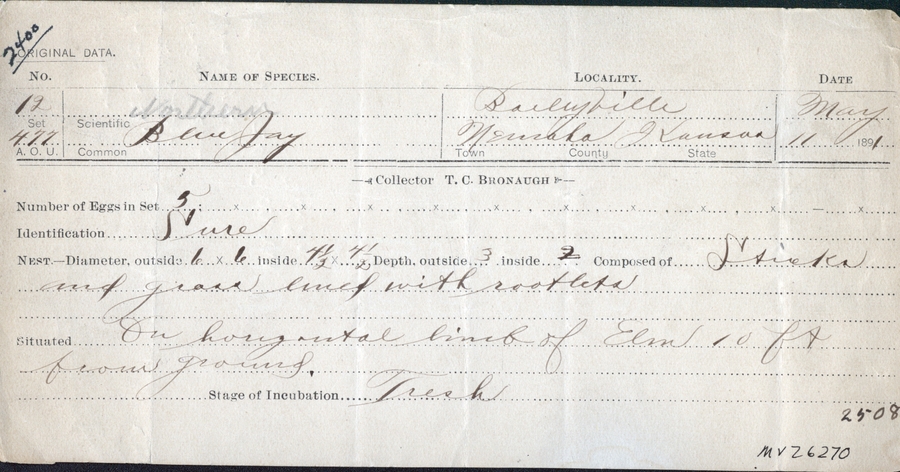 2400
ORIGINAL DATA.
No. NAME OF SPECIES. LOCALITY. DATE
12 Northern Bailyville May
Set Scientific
477 Blue Jay Nemaha Kansas 11 1891
A. O. U. Common Town County State
Collector T. C. BRONAUGH
Number of Eggs in Set 5
Identification Sure
NEST.—Diameter, outside 6 x 6 inside 4½ x 4½ Depth, outside 3 inside 2 Composed of Sticks
and grass lined with rootlets
Situated On horizontal limb of Elm 10 ft
from ground.
Stage of Incubation Fresh
2508
MVZ6270